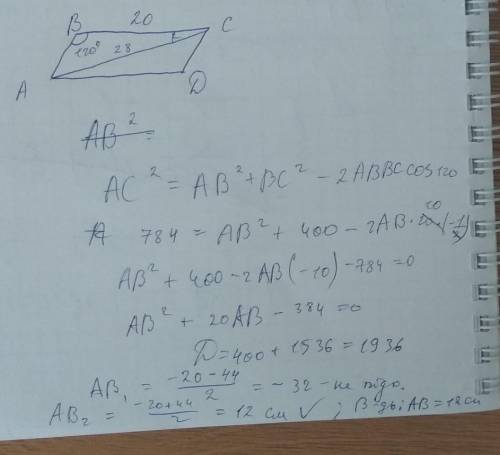 B 20 C
120° 28
A D
AB² =
AC² = AB² + BC² - 2ABBC cos120
784 = AB² + 400 - 2AB · 20 (-1/2)
10
AB² + 400 - 2AB(-10) - 784 = 0
AB² + 20AB - 384 = 0
D = 400 + 1536 = 1936
AB₁ = (-20-44)/2 = -32 - не підо.
AB₂ = (-20+44)/2 = 12 см ✓ ; В-дь: AB = 12 см